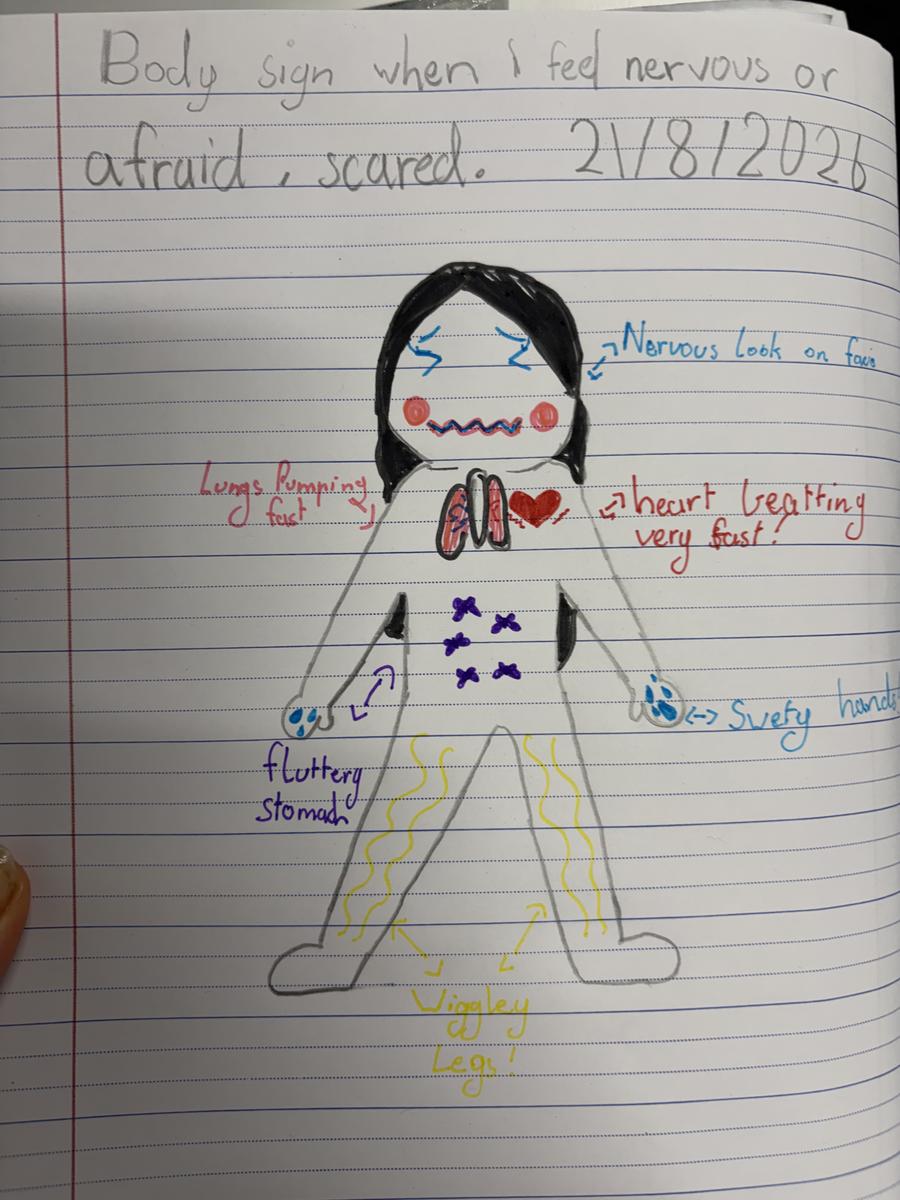 Body sign when i feel nervous or
afraid, scared. 21/8/2026
Nervous Look on
Lungs Pumping
fast
heart beatting
very fast!
Swety hands
fluttery
stomach
Wiggley
Legs!